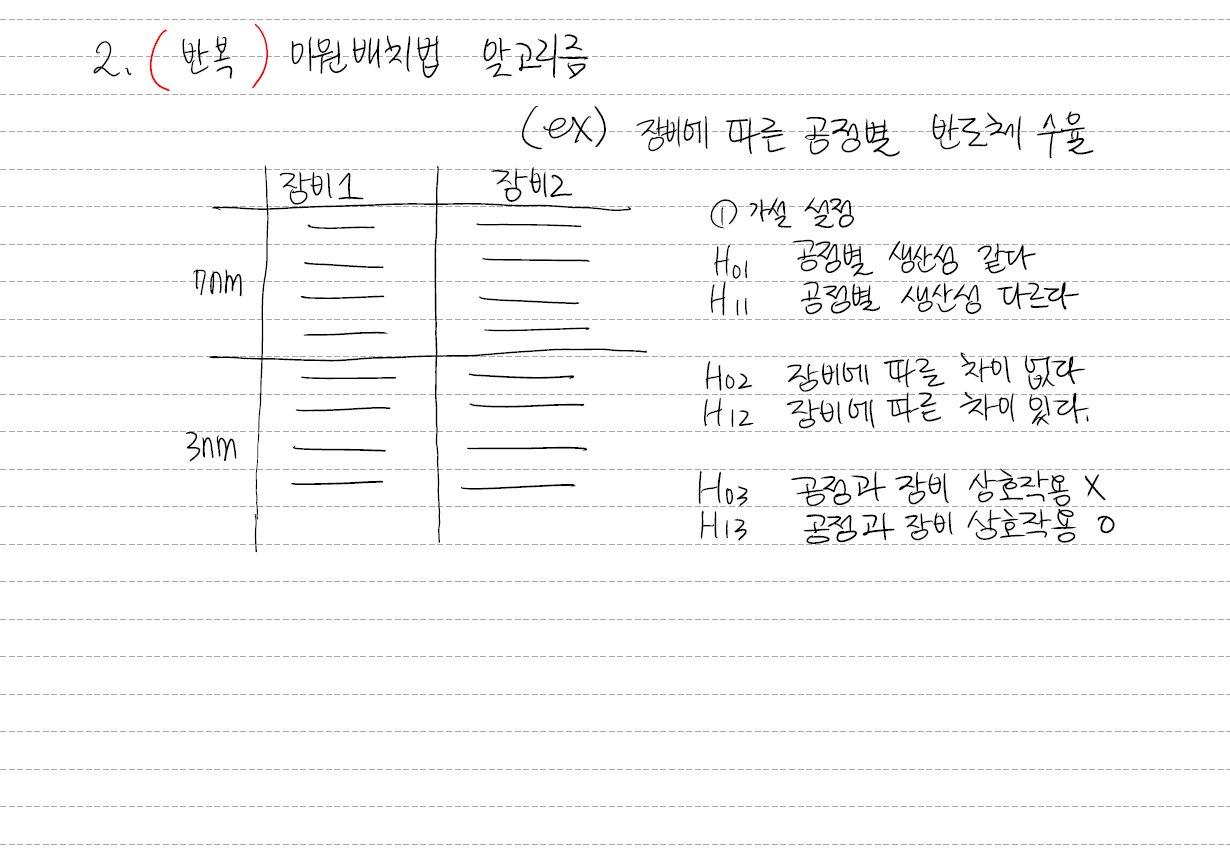 2. (반복) 이원배치법 알고리즘
(ex) 장비에 따른 공정별 반도체 수율
장비1 장비2
7nm
3nm
① 가설 설정
H01 공정별 생산성 같다
H11 공정별 생산성 다르다
H02 장비에 따른 차이 없다
H12 장비에 따른 차이 있다.
H03 공정과 장비 상호작용 X
H13 공정과 장비 상호작용 O